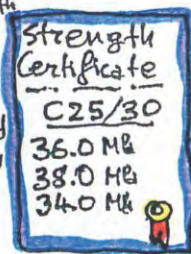 Strength
Certificate
C25/30
36.0 MPa
38.0 MPa
34.0 MPa